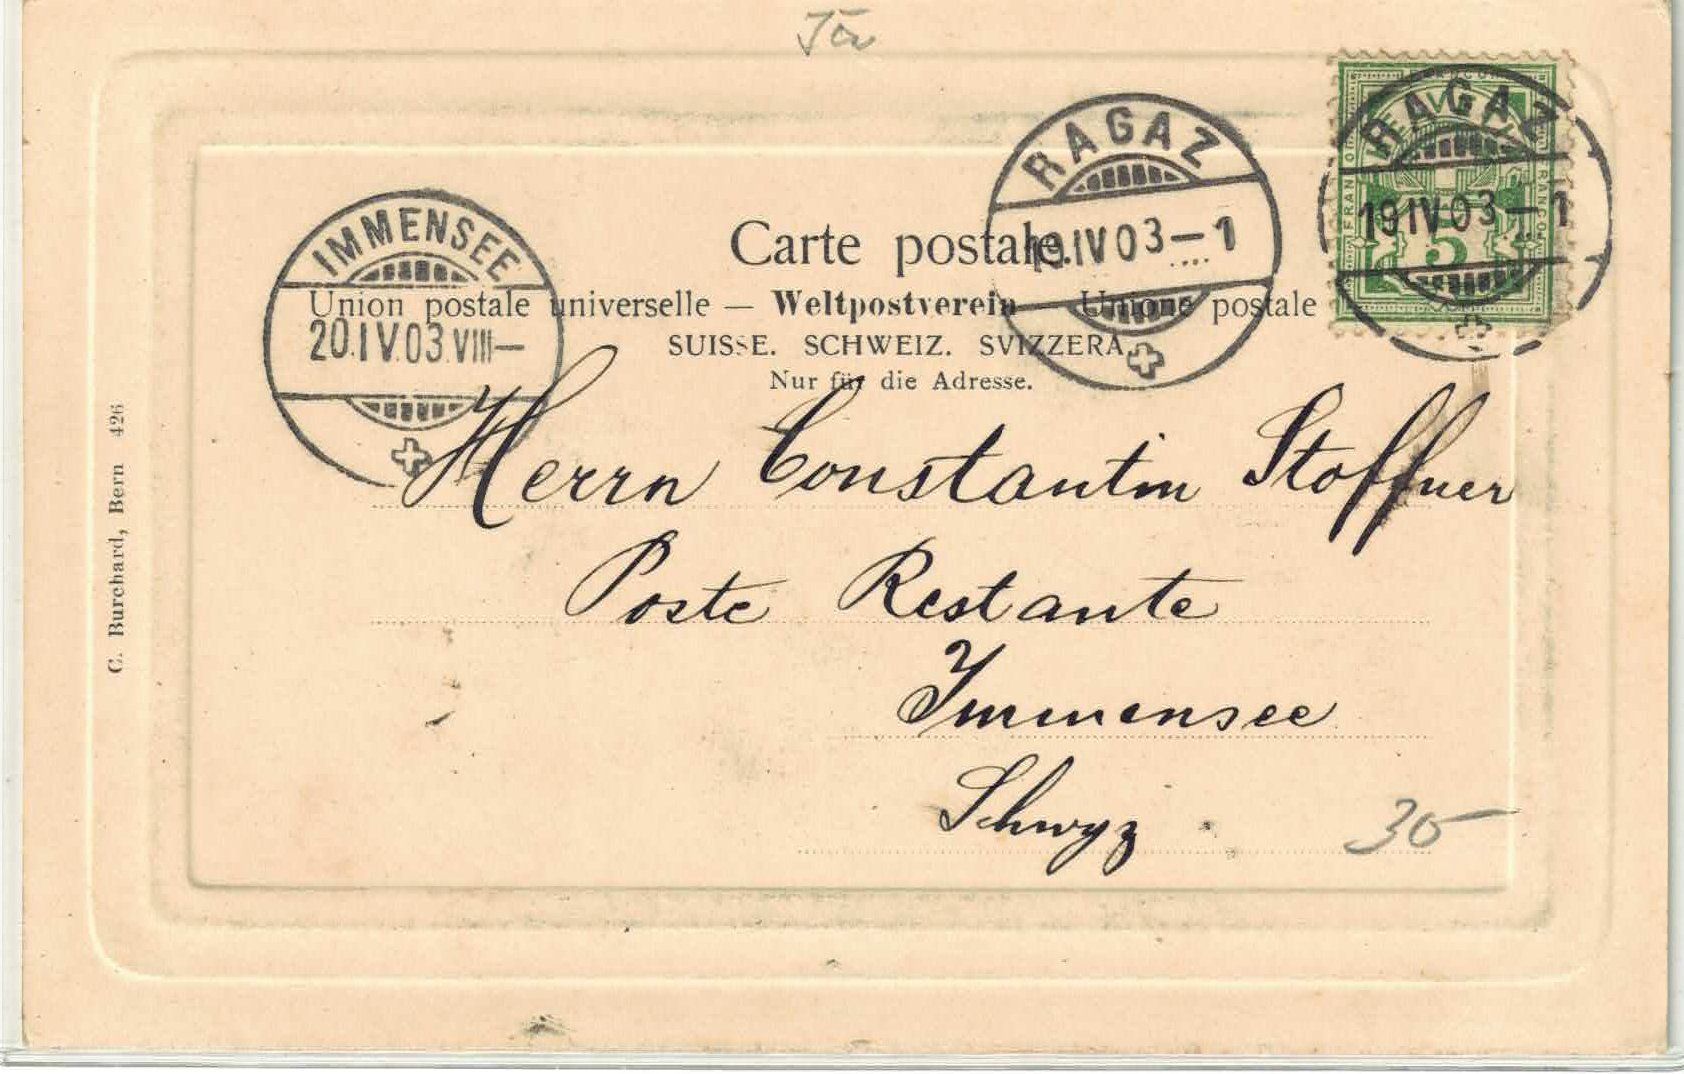 RAGAZ
19.IV.03-1
RAGAZ
19.IV.03-1
FRANCO
5
IMMENSEE
20.IV.03.VIII-
Carte postale.
Union postale universelle — Weltpostverein — Unione postale
SUISSE. SCHWEIZ. SVIZZERA
Nur für die Adresse.
Herrn Constantin Stoffner
Poste Restante
Immensee
Schwyz
30
C. Burchard, Bern 426